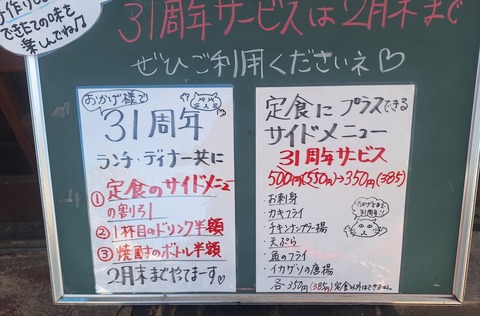 手作りし
できたての味を
楽んでね♪
31周年サービスは2月末まで
ぜひご利用くださいネ♡
おかげ様で
31周年
ランチ・ディナー共に
① 定食のサイドメニュー
の割引
② 1杯目のドリンク半額
③ 焼酎のボトル半額
2月末までやてまーす♡
定食にプラスできる
サイドメニュー
31周年サービス
500円(550)→350円(385)
・お刺身
・カキフライ
・チキンナンプラー揚
・天ぷら
・魚のフライ
・イカゲソの唐揚
各350円(385)定食以外はできません
おかげさまで
31周年!!